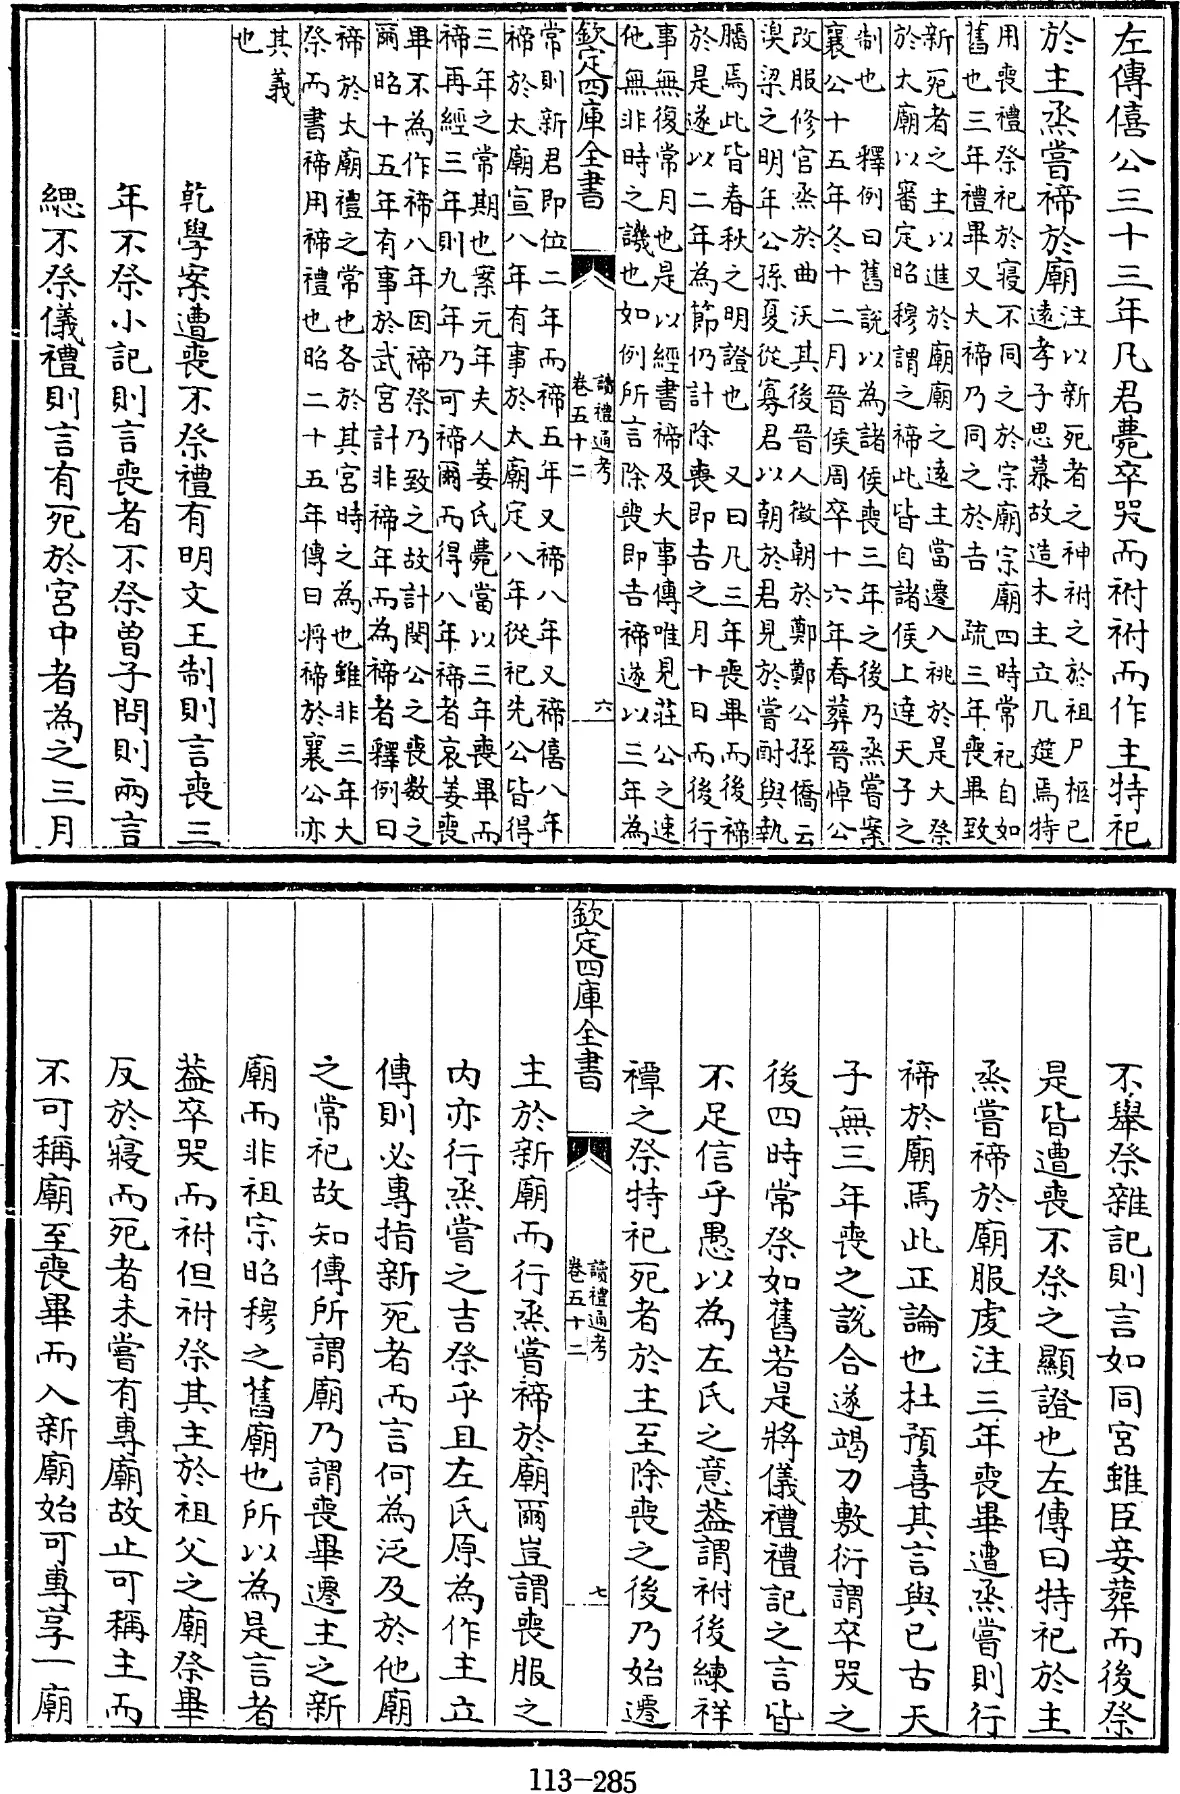 左傳僖公三十三年凡君薨卒哭而祔祔而作主特祀
於主烝嘗禘於廟注以新死者之神祔之於祖尸柩已
遠孝子思慕故造木主立几筵焉特
用喪禮祭祀於寢不同之於宗廟宗廟四時常祀自如
舊也三年禮畢又大禘乃同之於吉　疏三年喪畢致
新死者之主以進於廟廟之遠主當遷入祧於是大祭
於太廟以審定昭穆謂之禘此皆自諸侯上達天子之
制也　釋例曰舊說以為諸侯喪三年之後乃烝嘗案
襄公十五年冬十二月晉侯周卒十六年春葬晉悼公
改服修官烝於曲沃其後晉人徵朝於鄭鄭公孫僑云
溴梁之明年公孫夏從寡君以朝於君見於嘗酎與執
膰焉此皆春秋之明證也　又曰凡三年喪畢而後禘
於是遂以二年為節仍計除喪即吉之月十日而後行
事無復常月也是以經書禘及大事傳唯見莊公之速
他無非時之譏也如例所言除喪即吉禘遂以三年為
欽定四庫全書
讀禮通考
卷五十二
六
常則新君即位二年而禘五年又禘八年又禘僖八年
禘於太廟宣八年有事於太廟定八年從祀先公皆得
三年之常期也案元年夫人姜氏薨當以三年喪畢而
禘再經三年則九年乃可禘爾而得八年禘者哀姜喪
畢不為作禘八年因禘祭乃致之故計閔公之喪數之
爾昭十五年有事於武宮計非禘年而為禘者釋例曰
禘於太廟禮之常也各於其宮時之為也雖非三年大
祭而書禘用禘禮也昭二十五年傳曰将禘於襄公亦
其義
也
乾學案遭喪不祭禮有明文王制則言喪三
年不祭小記則言喪者不祭曾子問則兩言
緦不祭儀禮則言有死於宮中者為之三月
不舉祭雜記則言如同宮雖臣妾葬而後祭
是皆遭喪不祭之顯證也左傳曰特祀於主
烝嘗禘於廟服虔注三年喪畢遭烝嘗則行
禘於廟焉此正論也杜預喜其言與已古天
子無三年喪之說合遂竭力敷衍謂卒哭之
後四時常祭如舊若是將儀禮禮記之言皆
不足信乎愚以為左氏之意葢謂祔後練祥
禫之祭特祀死者於主至除喪之後乃始遷
欽定四庫全書
讀禮通考
卷五十二
七
主於新廟而行烝嘗禘於廟爾豈謂喪服之
内亦行烝嘗之吉祭乎且左氏原為作主立
傳則必專指新死者而言何為泛及於他廟
之常祀故知傳所謂廟乃謂喪畢遷主之新
廟而非祖宗昭穆之舊廟也所以為是言者
葢卒哭而祔但祔祭其主於祖父之廟祭畢
反於寢而死者未嘗有專廟故止可稱主而
不可稱廟至喪畢而入新廟始可專享一廟
113-285